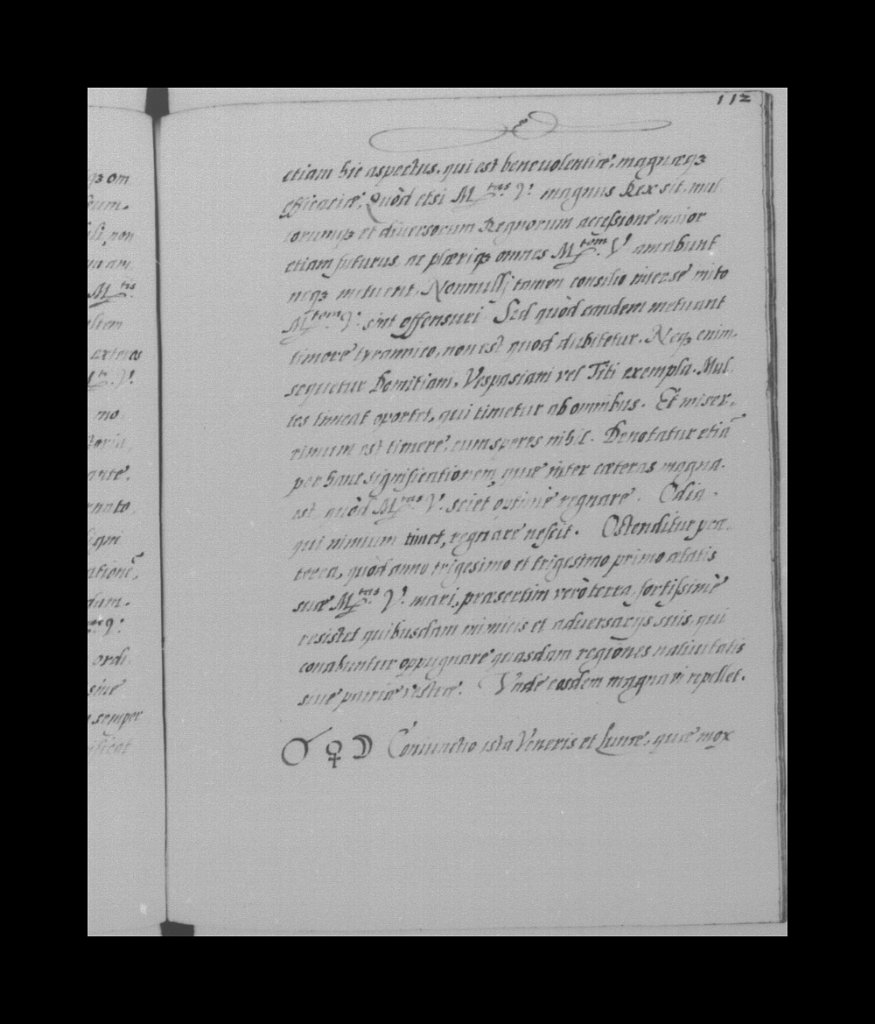 112
etiam hic aspectus, qui est beneuolentiæ, magnæqꝫ
efficaciæ. Quòd etsi M.tas V. magnus Rex sit, mul
torumqꝫ et diuersorum Regnorum accessione maior
etiam futurus, ac plæriqꝫ omnes M.tem V. amabunt
neqꝫ metuent, Nonnulli tamen consilio inter se inito
M.tem V. sint offensuri. Sed quòd eandem metuant
timore tyrannico, non est quod dubitetur. Neqꝫ enim
sequetur Domitiani, Vespasiani vel Titi exempla. Mul
tos timeat oportet, qui timetur ab omnibus. Et miser
rimum est timere, cum speres nihil. Denotatur etiã
per hanc significationem, quæ inter cæteras magna
est, quòd M.tas V. sciet optimè regnare. Odia
qui nimium timet, regnare nescit. Ostenditur præ
terea, quòd anno trigesimo et trigesimo primo ætatis
suæ M.tas V. mari, præsertim verò terra, fortissimè
resistet quibusdam inimicis et aduersarijs suis, qui
conabuntur oppugnare quasdam regiones natiuitatis
siue patriæ vestræ. Vnde eosdem repellet.
☌ ♀ ☽ Coniunctio ista Veneris et Lunæ, quæ mox